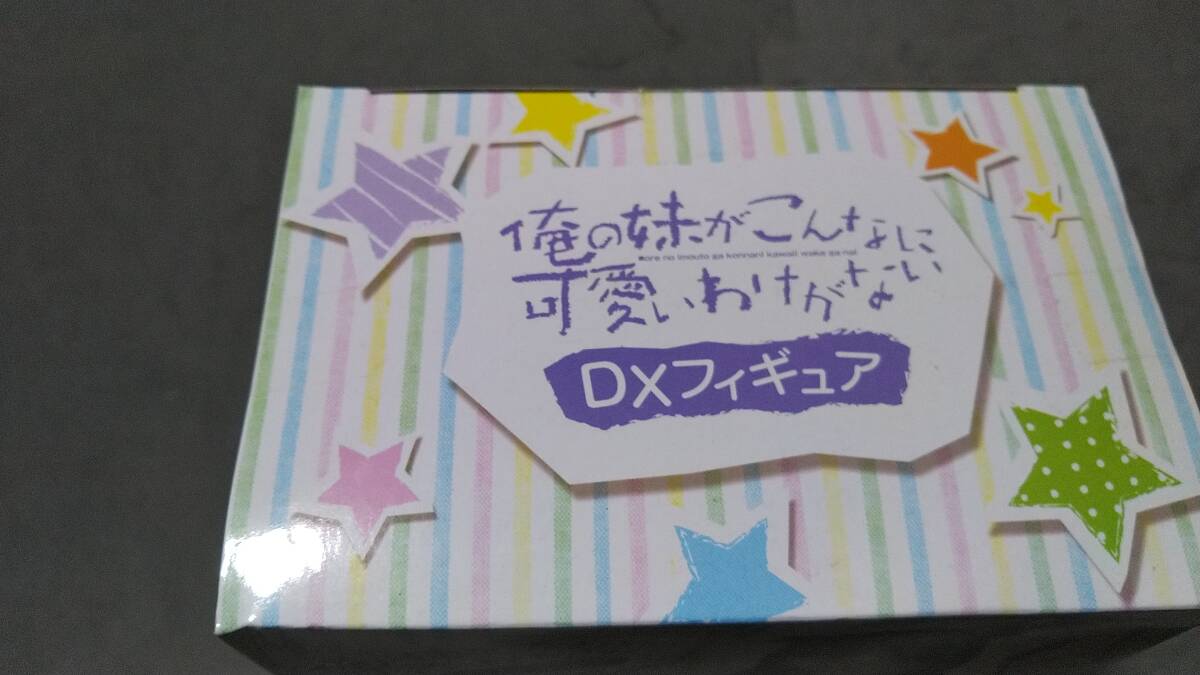 俺の妹がこんなに
ore no imouto ga konnani kawaii wake ga nai
可愛いわけがない
DXフィギュア